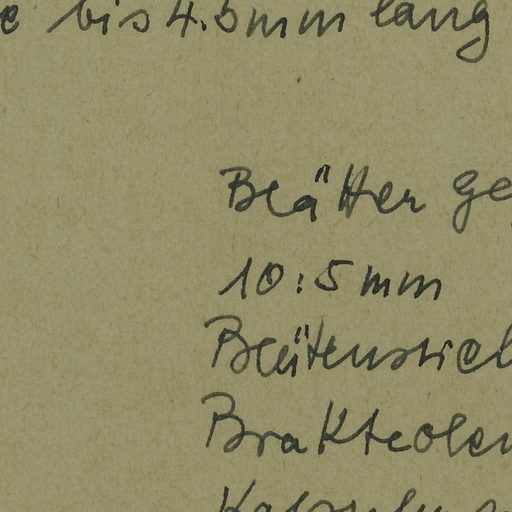 e bis 4.5mm lang
Blätter ge
10:5mm
Blütenstiel
Brakteolen
Kapseln